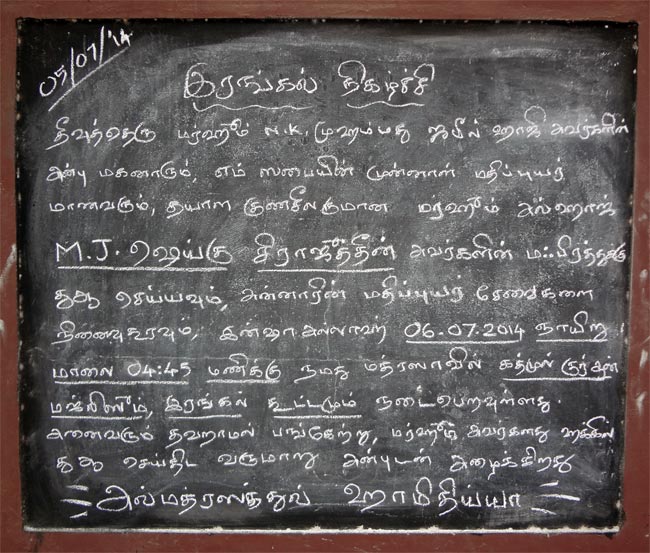 05/07/'14
இரங்கல் நிகழ்ச்சி
தீவுத்தெரு மர்ஹூம் N.K. முஹம்மது ஜமீல் ஹாஜி அவர்களின்
அன்பு மகனாரும், எம் ஸபையின் முன்னாள் மதிப்புயர்
மாணவரும், தயாள குணசீலருமான மர்ஹூம் அல்ஹாஜ்
M.J. ஷெய்கு சிராஜுத்தீன் அவர்களின் மஃபிரத்துக்கு
துஆ செய்யவும், அன்னாரின் மதிப்புயர் சேவைகளை
நினைவுகூரவும், இன்ஷாஅல்லாஹ் 06.07.2014 ஞாயிறு
மாலை 04:45 மணிக்கு நமது மத்ரஸாவில் கத்முல் குர்ஆன்
மஜ்லிஸும், இரங்கல் கூட்டமும் நடைபெறவுள்ளது.
அனைவரும் தவறாமல் பங்கேற்று, மர்ஹூம் அவர்களது ஹக்கில்
துஆ செய்திட வருமாறு அன்புடன் அழைக்கிறது
அல்மத்ரஸத்துல் ஹாமிதிய்யா